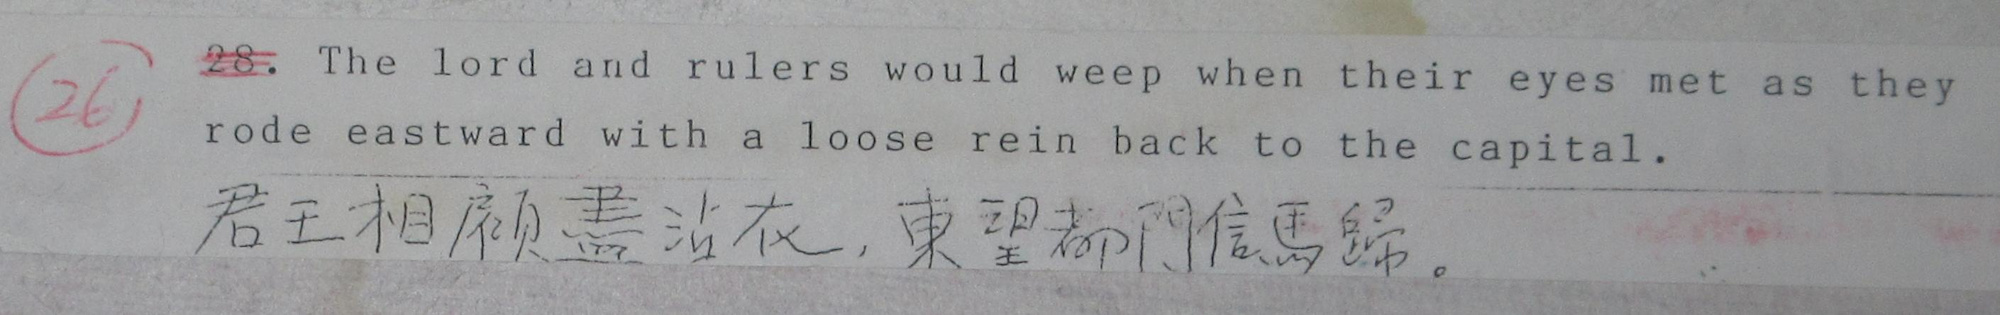 26
28. The lord and rulers would weep when their eyes met as they
rode eastward with a loose rein back to the capital.
君王相顧盡沾衣,東望都門信馬歸。